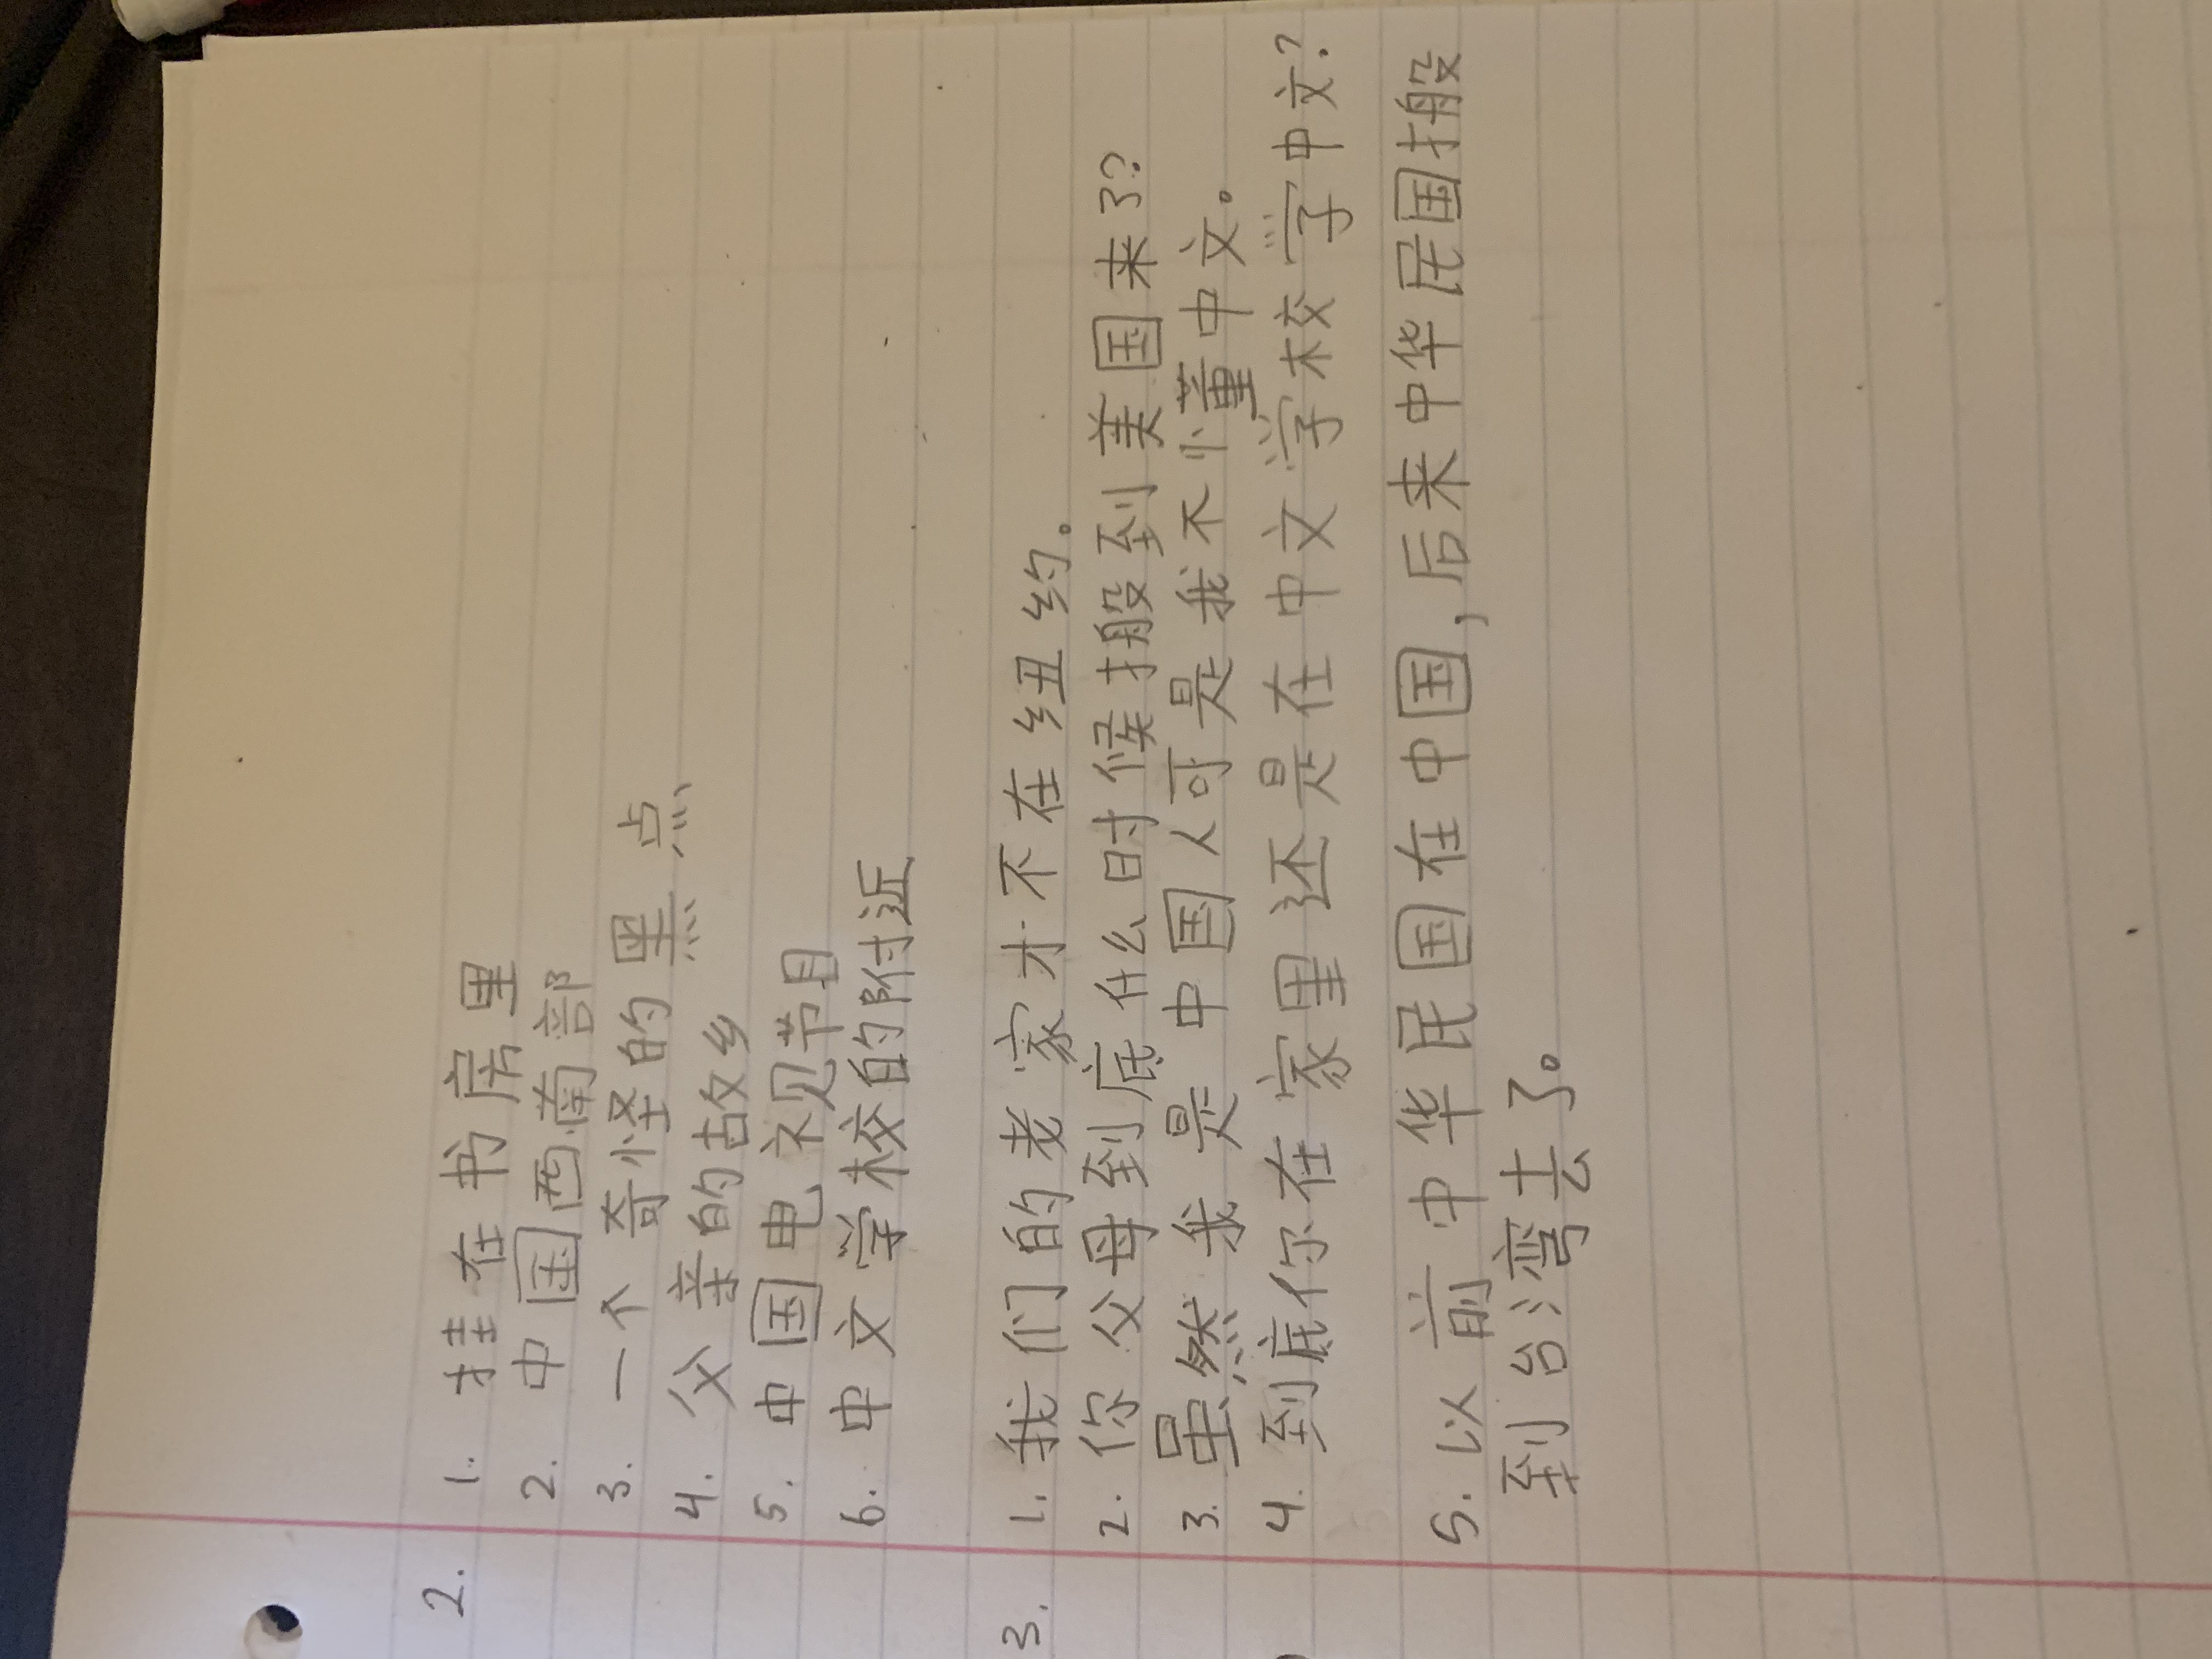 2. 1. 挂在书房里
2. 中国西南部
3. 一个奇怪的黑点
4. 父亲的故乡
5. 中国电视节目
6. 中文学校的附近
3. 1. 我们的老家才不在纽约。
2. 你父母到底什么时候搬到美国来了?
3. 虽然我是中国人可是我不懂中文。
4. 到底你在家里还是在中文学校学中文?
5. 以前中华民国在中国,后来中华民国搬
到台湾去了。